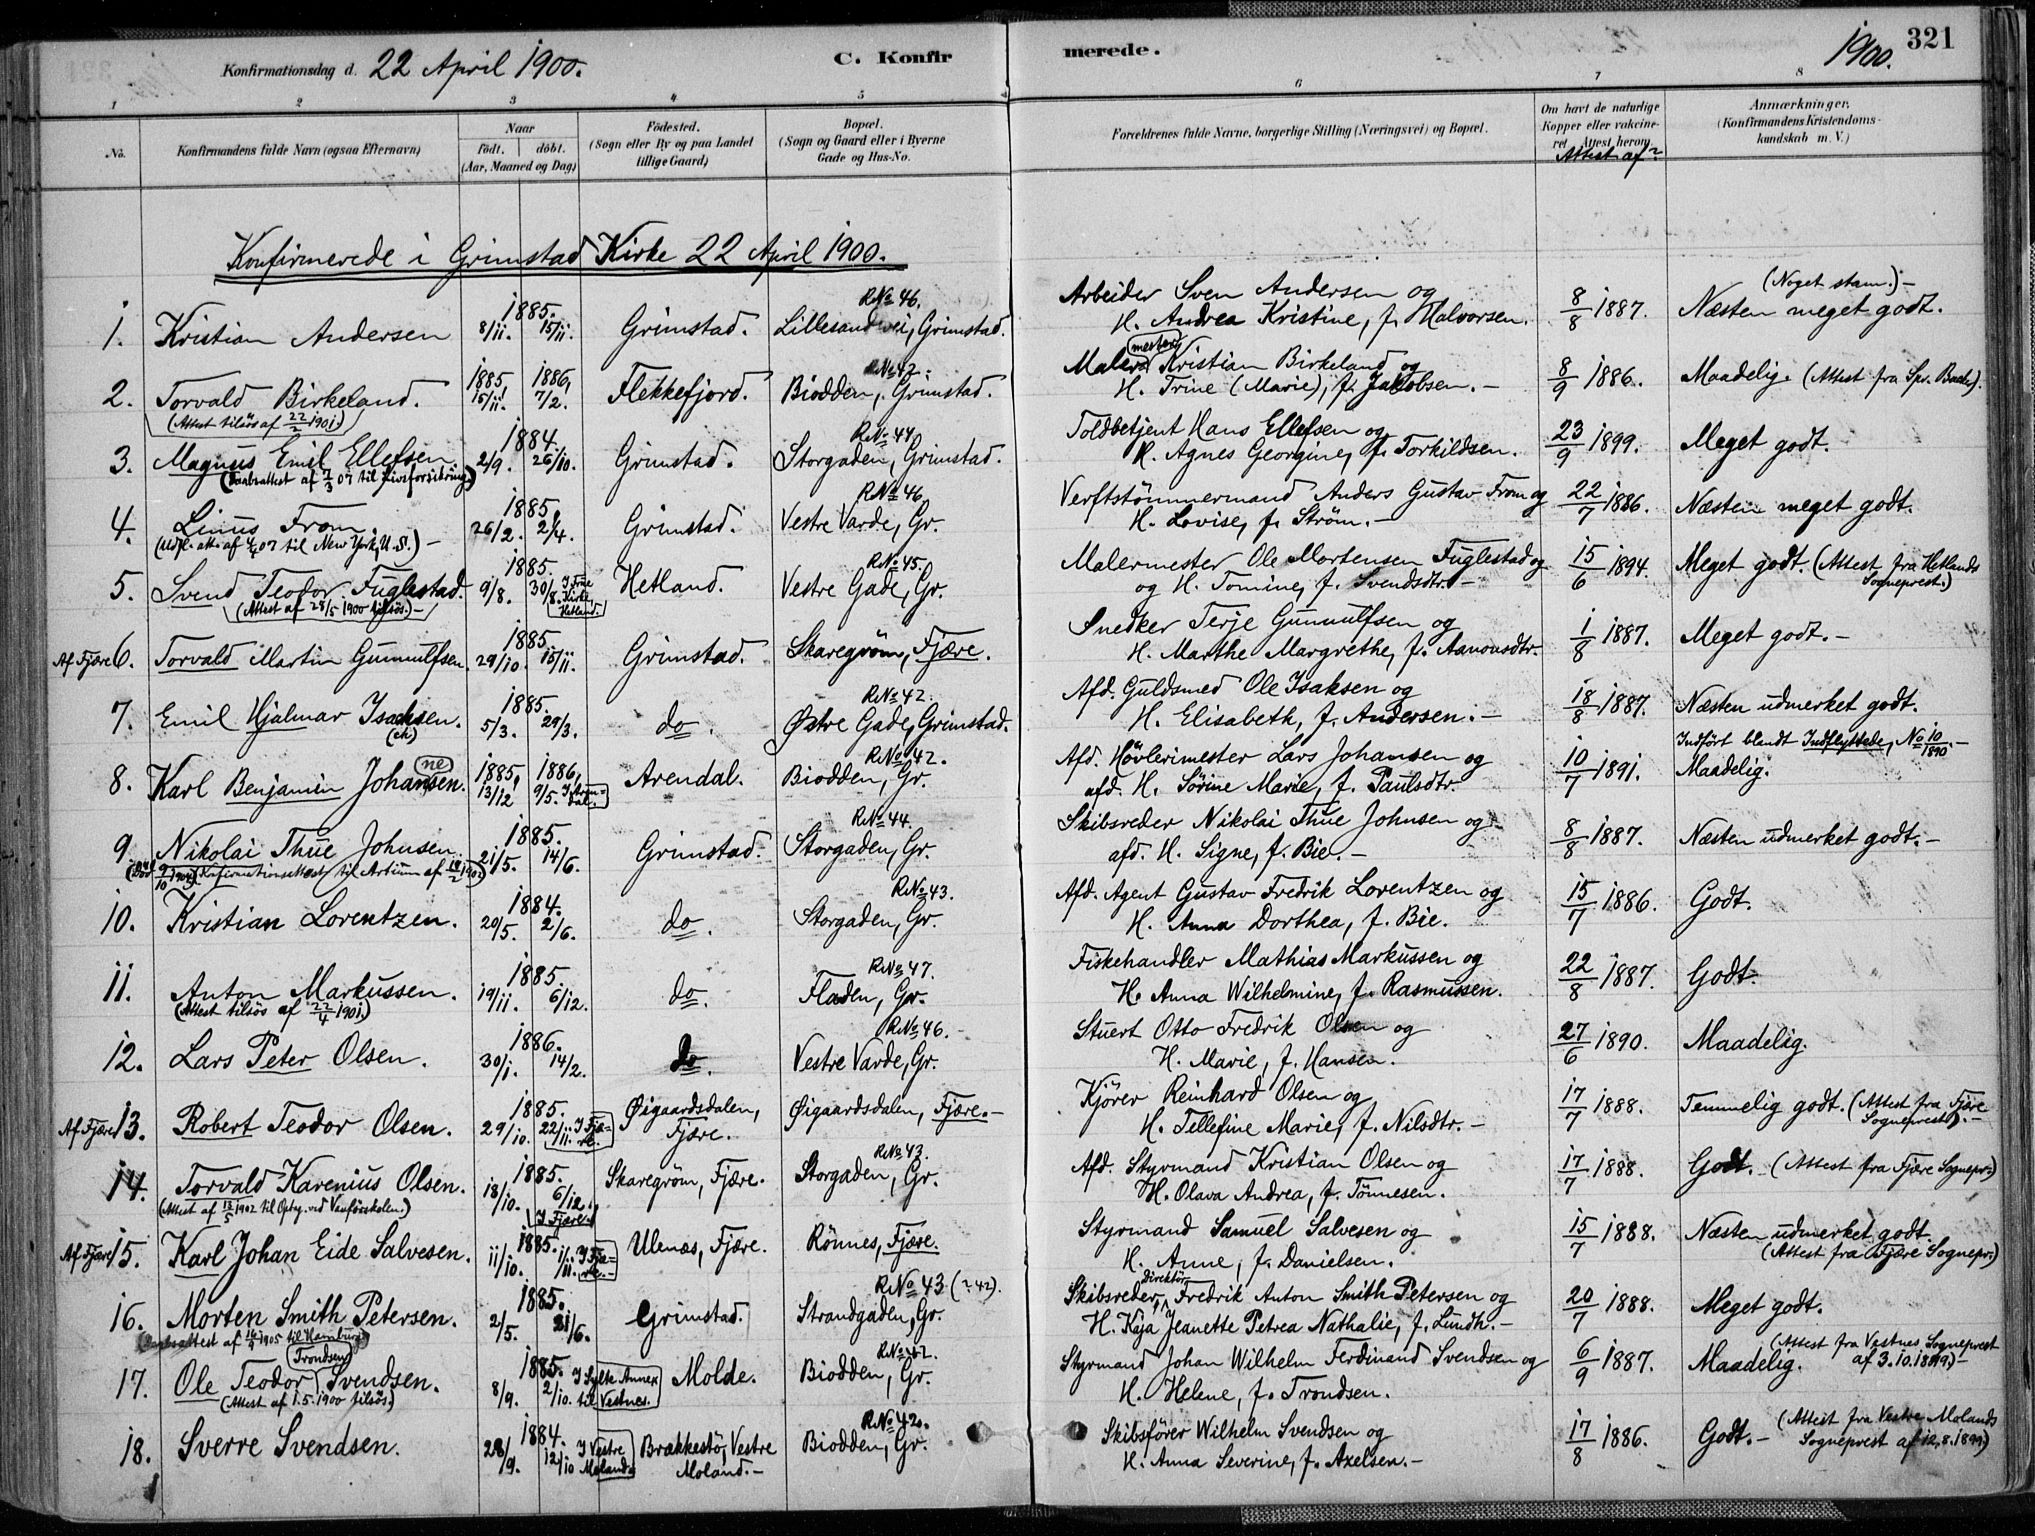 Konfirmationsdag d. 22 April 1900.
C. Konfirmerede.
1900.
321
1 2 3 4 5 6 7 8
No.
Konfirmandens fulde Navn (ogsaa Efternavn)
Naar
født. døbt.
(Aar, Maaned og Dag)
Fødested.
(Sogn eller By og paa Landet
tillige Gaard)
Bopæl.
(Sogn og Gaard eller i Byerne
Gade og Hus-No.
Forældrenes fulde Navne, borgerlige Stilling (Næringsvei) og Bopæl.
Om havt de naturlige
Kopper eller vakcine-
ret. Attest herom.
Attest af
Anmærkninger.
(Konfirmandens Kristendoms-
kundskab m. V.)
Konfirmerede i Grimstad Kirke 22 April 1900.
1885. R.No 46. Arbeider Sven Andersen og (Noget stam.)-
1. Kristian Andersen 8/11. 15/11. Grimstad. Lillesandsvei, Grimstad. H. Andrea Kristine, f. Halvorsen. 8/8 1887. Næsten meget godt.
1885, 1886, R.No 42. Malermester Kristian Birkeland og
2. Torvald Birkeland. 15/11. 7/2. Flekkefjord. Biodden, Grimstad. H. Trine (Marie), f. Jakobsen.- 8/9 1886. Maadelig. (Attest fra Spr. )
(Attest tilsøs af 22/2 1901.)
1884. R.No 44. Toldbetjent Hans Ellefsen og
3. Magnus Emil Ellefsen 2/9. 26/10. Grimstad. Storgaden, Grimstad. H. Agnes Georgine, f. Torkildsen. 23/9 1899. Meget godt.
(Daabsattest af 7/3 07 til Livsforsikring.)
1885, R.No 46. Verftstømmermand Anders Gustav From og
4. Linus From. 26/2. 2/4. Grimstad. Vestre Varde, Gr. H. Lovise, f. Strøm.- 22/7 1886. Næsten meget godt.
(Udfl. att. af 4/4 07 til New York, U. S.)-
1885. R.No 45. Malermester Ole Mortensen Fuglestad og
5. Svend Teodor Fuglestad. 9/8. 30/8. I Frue Kirke, Hetland. Hetland. Vestre Gade, Gr. og H. Tomine, f. Svendsdtr.- 15/6 1894. Meget godt. (Attest fra Hetlands Sogneprest.)
(Attest af 28/5 1900 tilsøs.)-
1885. Snedker Terje Gunnulfsen og
Af Fjære 6. Torvald Martin Gunnulfsen. 29/10. 15/11. Grimstad. Skaregrøm, Fjære. H. Marthe Margrethe, f. Aanonsdtr. 1/8 1887. Meget godt.-
1885. R.No 42. Afd. Guldsmed Ole Isaksen og
7. Emil Hjalmar Isachsen. (ch) 5/3. 29/3. do. Østre Gade, Grimstad. H. Elisabeth, f. Andersen.- 18/8 1887. Næsten udmerket godt.
1885, 1886, R.No 42. Afd. Høvlerimester Lars Johansen og Indført blandt Indflyttede, No 10/1890.-
8. Karl Benjamin Johansen. (ne) 13/12 9/5. I Arendal. Arendal. Biodden, Gr. afd. H. Sørine Marie, f. Paulsdtr. 10/7 1891. Maadelig.
1885. R.No 44. Skibsreder Nikolai Thue Johnsen og
9. Nikolai Thue Johnsen. 21/5. 14/6. Grimstad. Storgaden, Gr. afd. H. Signe, f. Bie.- 8/8 1887. Næsten udmerket godt.-
(Død 9/10 1904) Konfirmationsattest til Artium af
1884. R.No 43. Afd. Agent Gustav Fredrik Lorentzen og
10. Kristian Lorentzen. 20/5. 2/6. do. Storgaden, Gr. H. Anna Dorthea, f. Bie. 15/7 1886. Godt.
1885. R.No 47. Fiskehandler Mathias Markussen og
11. Anton Markussen. 19/11. 6/12. do. Fladen, Gr. H. Anna Wilhelmine, f. Rasmussen. 22/8 1887. Godt.
(Attest tilsøs af 22/4 1901.)
1886. R.No 46. Stuert Otto Fredrik Olsen og
12. Lars Peter Olsen. 30/1. 14/2. do. Vestre Varde, Gr. H. Marie, f. Hansen. 27/6 1890. Maadelig.
1885. Kjører Reinhard Olsen og
Af Fjære 13. Robert Teodor Olsen. 29/10. 22/11. I Fjære. Øigaardsdalen, Fjære. Øigaardsdalen, Fjære.- H. Tellefine Marie, f. Nilsdtr.- 17/7 1888. Temmelig godt. (Attest fra Fjære Sogneprest).-
1885. R.No 43. Afd. Styrmand Kristian Olsen og
14. Torvald Karenius Olsen. 18/10. 6/12. I Fjære. Skaregrøm, Fjære. Storgaden, Gr. H. Olava Andrea, f. Tønnesen. 17/7 1888. Godt. (Attest fra Fjære Sognepr.)
(Attest af 12/5 1902 til Optag. ved Vanførskolen.)
1885. Styrmand Samuel Salvesen og
Af Fjære 15. Karl Johan Eide Salvesen. 11/10. 1/11. I Fjære.- Ulenæs, Fjære. Rønnes, Fjære. H. Anne, f. Danielsen. 15/7 1888. Næsten udmerket godt. (Attest fra Fjære Sognepr.)
1885. R.No 43 (?42). Skibsreder, direktør Fredrik Anton Smith Petersen og
16. Morten Smith Petersen. 2/5. 21/6. Grimstad. Strandgaden, Gr. H. Kaja Jeanette Petrea Nathalie, f. Lundh.- 20/7 1888. Meget godt.
(Daabsattest af 14/4 1905 til Hamburg)
1885. R.No 42. Styrmand Johan Wilhelm Ferdinand Svendsen og (Attest fra Vestnes Sogneprest af 3.10.1899)-
17. Ole Teodor (Trondsen) Svendsen. 8/9. 2/10. I Sylte Annex til Vestnes. Molde. Biodden, Gr. H. Helene, f. Trondsen. 6/9 1887. Maadelig.
(Attest af 1.5.1900 tilsøs.)
1884. R.No 42. Skibsfører Wilhelm Svendsen og (Attest fra Vestre Molands Sogneprest af 12.8.1899)
18. Sverre Svendsen. 28/9. 12/10 I Vestre Moland. Brækkestø, Vestre Moland.- Biodden, Gr. H. Anna Severine, f. Axelsen.- 17/8 1886. Godt.-